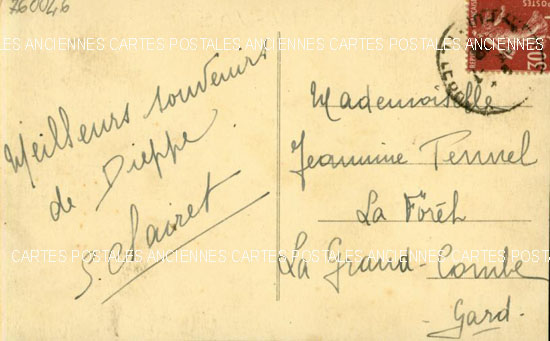 760046
Meilleurs souvenirs
de Dieppe.
S. Clairet
Mademoiselle
Jeannine Pennel
La Forêt
La Grand-Combe
Gard.
CARTES POSTALES ANCIENNES CARTES POSTALES ANCIENNES CARTES POSTALES ANCIENNES
CARTES POSTALES ANCIENNES CARTES POSTALES ANCIENNES CARTES POSTALES ANCIENNES
POSTES
30